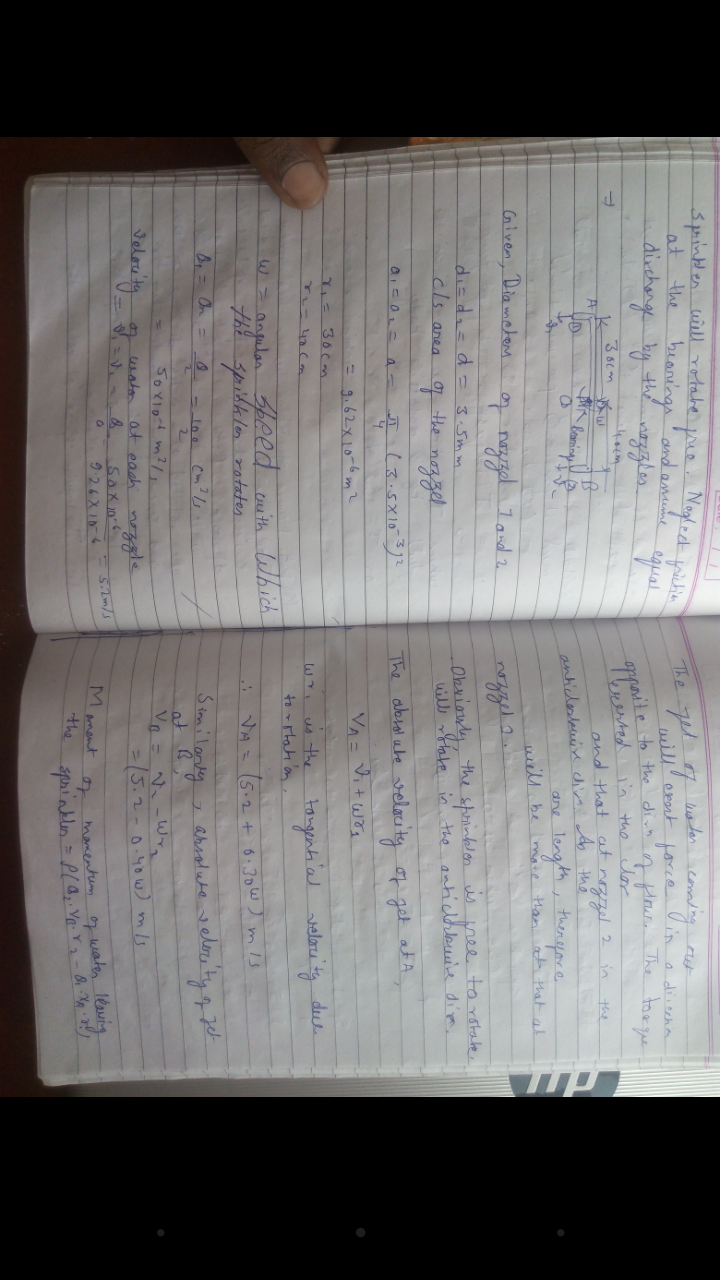 Sprinkler will rotate free. Neglect friction
at the bearings and assume equal
discharge by the nozzles
→
30cm 40cm
A K ω B
Given, Diameters of nozzel 1 and 2
d₁ = d₂ = d = 3.5mm
c/s area of the nozzel
a₁ = a₂ = a = π/4 (3.5×10⁻³)²
= 9.62×10⁻⁶ m²
r₁ = 30cm
r₂ = 40cm
ω = angular speed with Which
the sprinkler rotates
Q₁ = Q₂ = Q/2 = 100/2 cm³/s.
= 50×10⁻⁶ m³/s
Velocity of water at each nozzle
= V₁ = V₂ = Q/a = 50×10⁻⁶/9.26×10⁻⁶ = 5.2m/s
The jet of water coming out
will exert force in a direction
opposite to the dirn of flow. The torque
exerted in the clor
and that at nozzel 2 in the
anticlockwise dirn. As the
are length, therefore
will be more than at that at
nozzel 2.
Obviously the sprinkler is free to rotate.
will rotate in the anticlockwise dirn.
The absolute velocity of jet at A,
VA = V₁ + ωr₁
ωr₁ is the tangential velocity due
to rotation.
∴ VA = (5.2 + 0.30ω) m/s
Similarly, absolute velocity of jet
at B,
VB = V₂ - ωr₂
= (5.2 - 0.40ω) m/s
Moment of momentum of water leaving
the sprinkler = ρ(Q₂.VB.r₂ - Q₁.VA.r₁)
hp